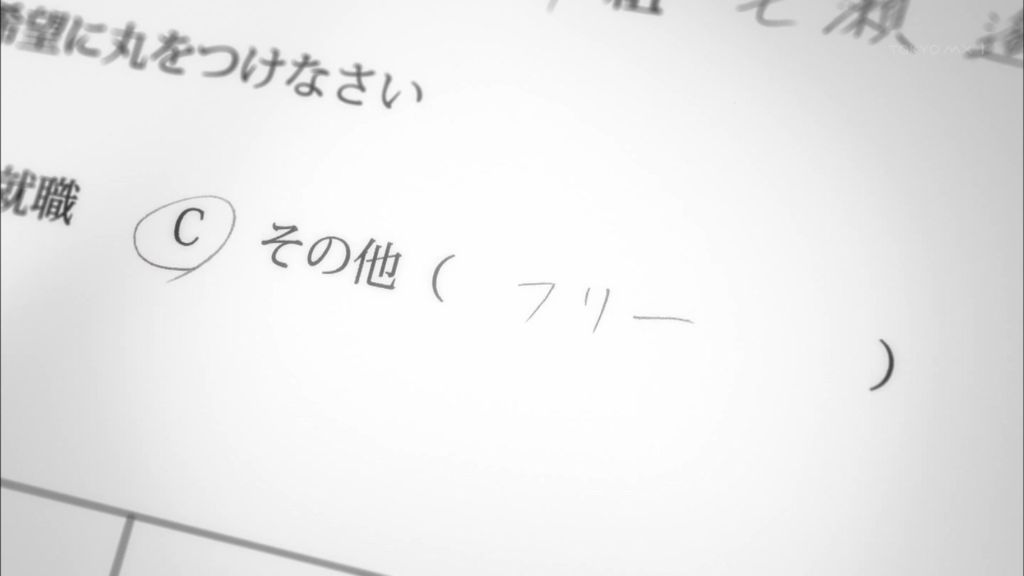 組 七瀬 遙
TOKYO MX 1
希望に丸をつけなさい
就職 C その他 ( フリー )